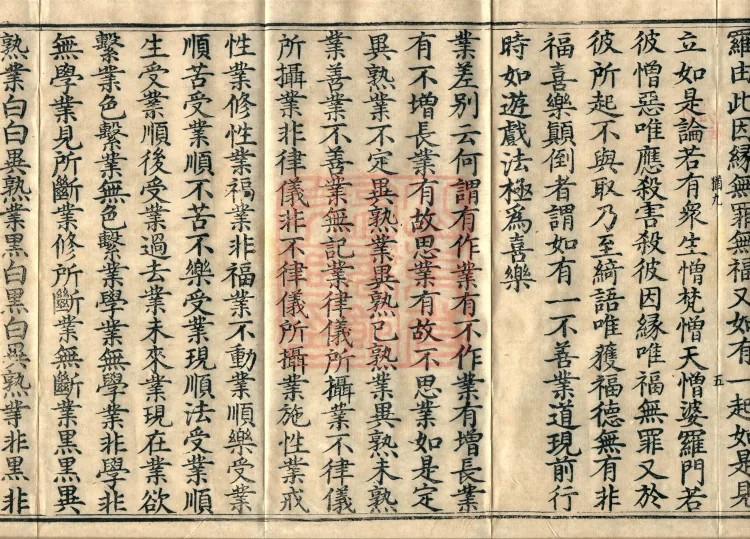 羅由此因縁無罪無福又如有一起如是見
立如是論若有衆生憎梵憎天憎婆羅門若
彼憎惡唯應殺害殺彼因縁唯福無罪又於
彼所起不與取乃至綺語唯獲福德無有非
福喜樂顛倒者謂如有一不善業道現前行
時如遊戲法極為喜樂
業差別云何謂有作業有不作業有增長業
有不增長業有故思業有故不思業如是定
異熟業不定異熟業異熟已熟業異熟未熟
業善業不善業無記業律儀所攝業不律儀
所攝業非律儀非不律儀所攝業施性業戒
性業修性業福業非福業不動業順樂受業
順苦受業順不苦不樂受業現順法受業順
生受業順後受業過去業未來業現在業欲
繫業色繫業無色繫業學業無學業非學非
無學業見所斷業修所斷業無斷業黒黒異
熟業白白異熟業黒白黒白異熟等非黒非
猶九
五